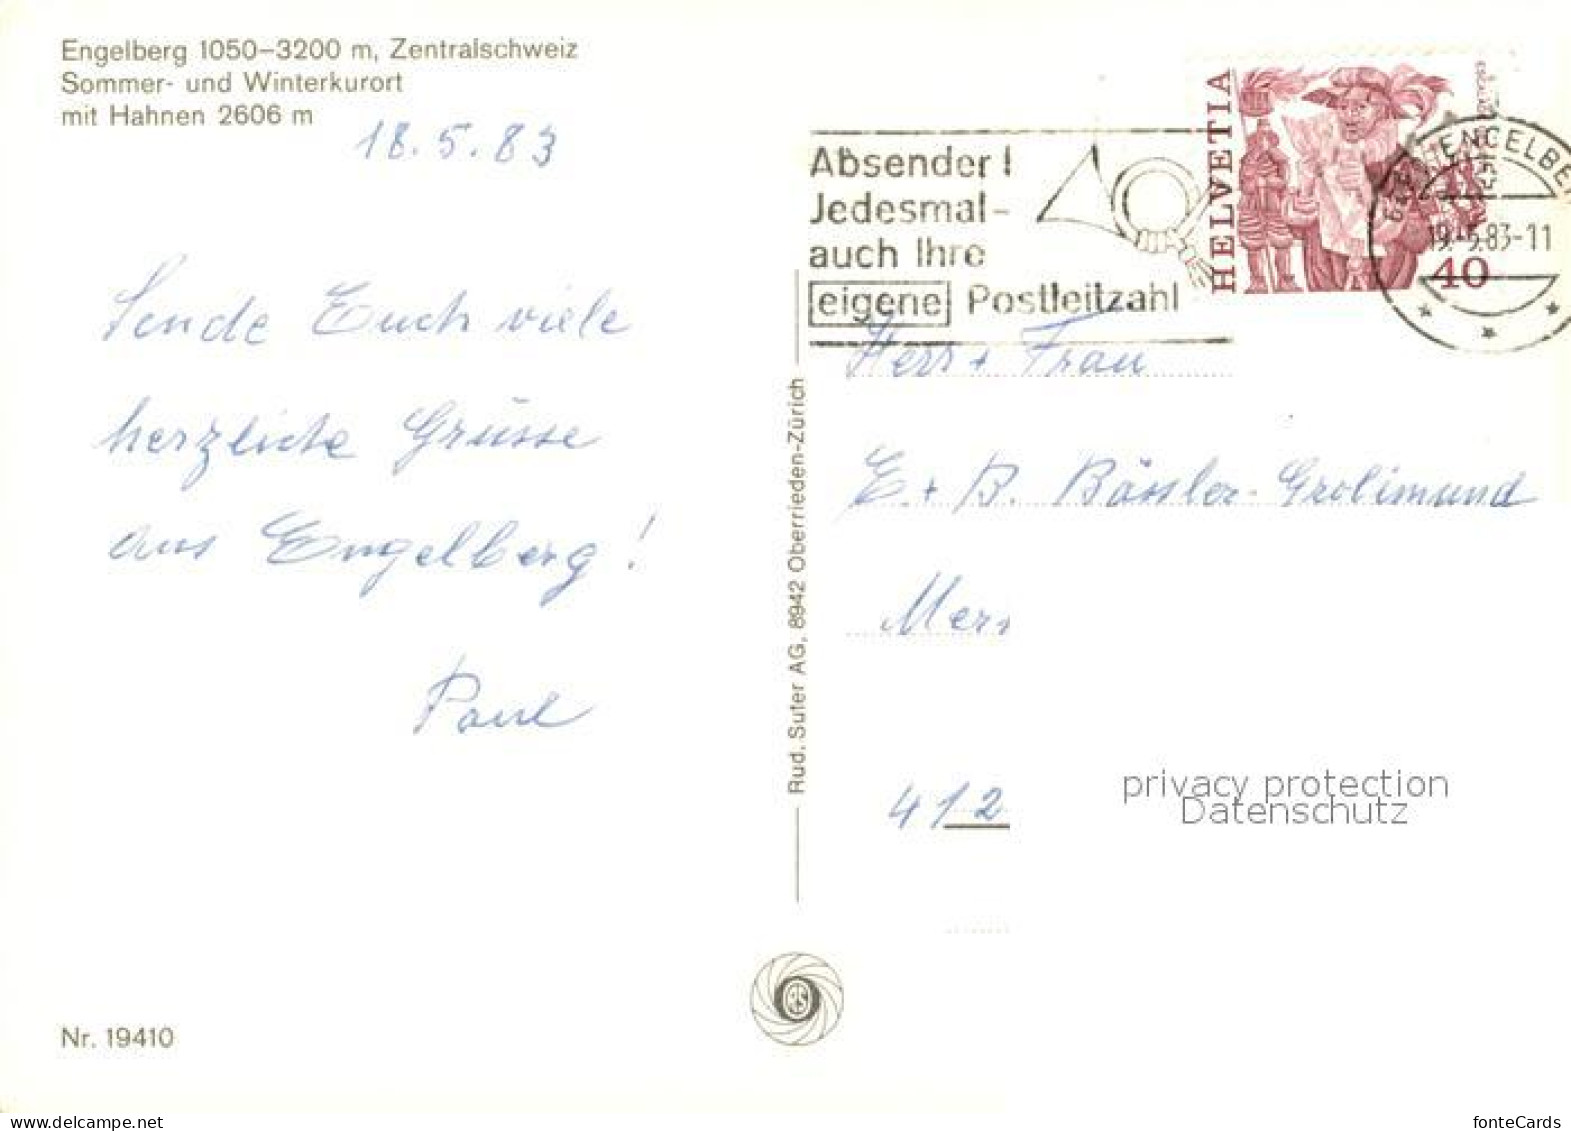 Engelberg 1050–3200 m, Zentralschweiz
Sommer- und Winterkurort
mit Hahnen 2606 m
18.5.83
Sende Euch viele
herzliche Grüsse
aus Engelberg!
Paul
Nr. 19410
Rud. Suter AG, 8942 Oberrieden-Zürich
Absender!
Jedesmal-
auch Ihre
eigene Postleitzahl
HELVETIA
40
ENGELBE
19.-5.83-11
Herr + Frau
E. + B. Bässler-Grolimund
412
privacy protection
Datenschutz
delcampe.net
fonteCards